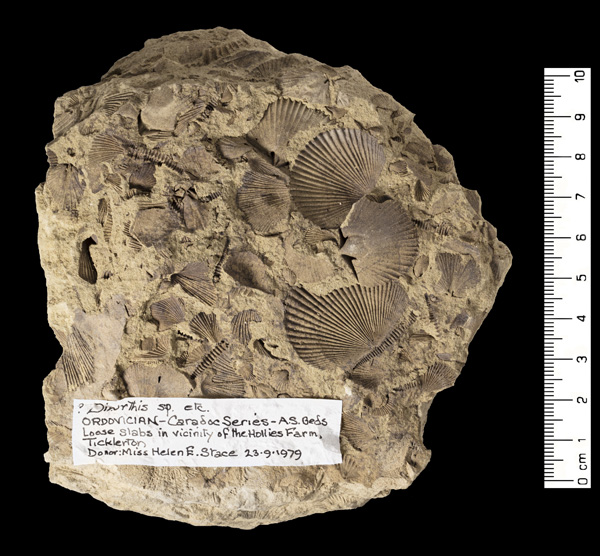 ? Dinorthis sp. etc.
ORDOVICIAN - Caradoc Series - A.S. Beds
Loose slabs in vicinity of the Hollies Farm,
Ticklerton
Donor: Miss Helen E. Stace 23.9.1979
10
9
8
7
6
5
4
3
2
1
0 cm